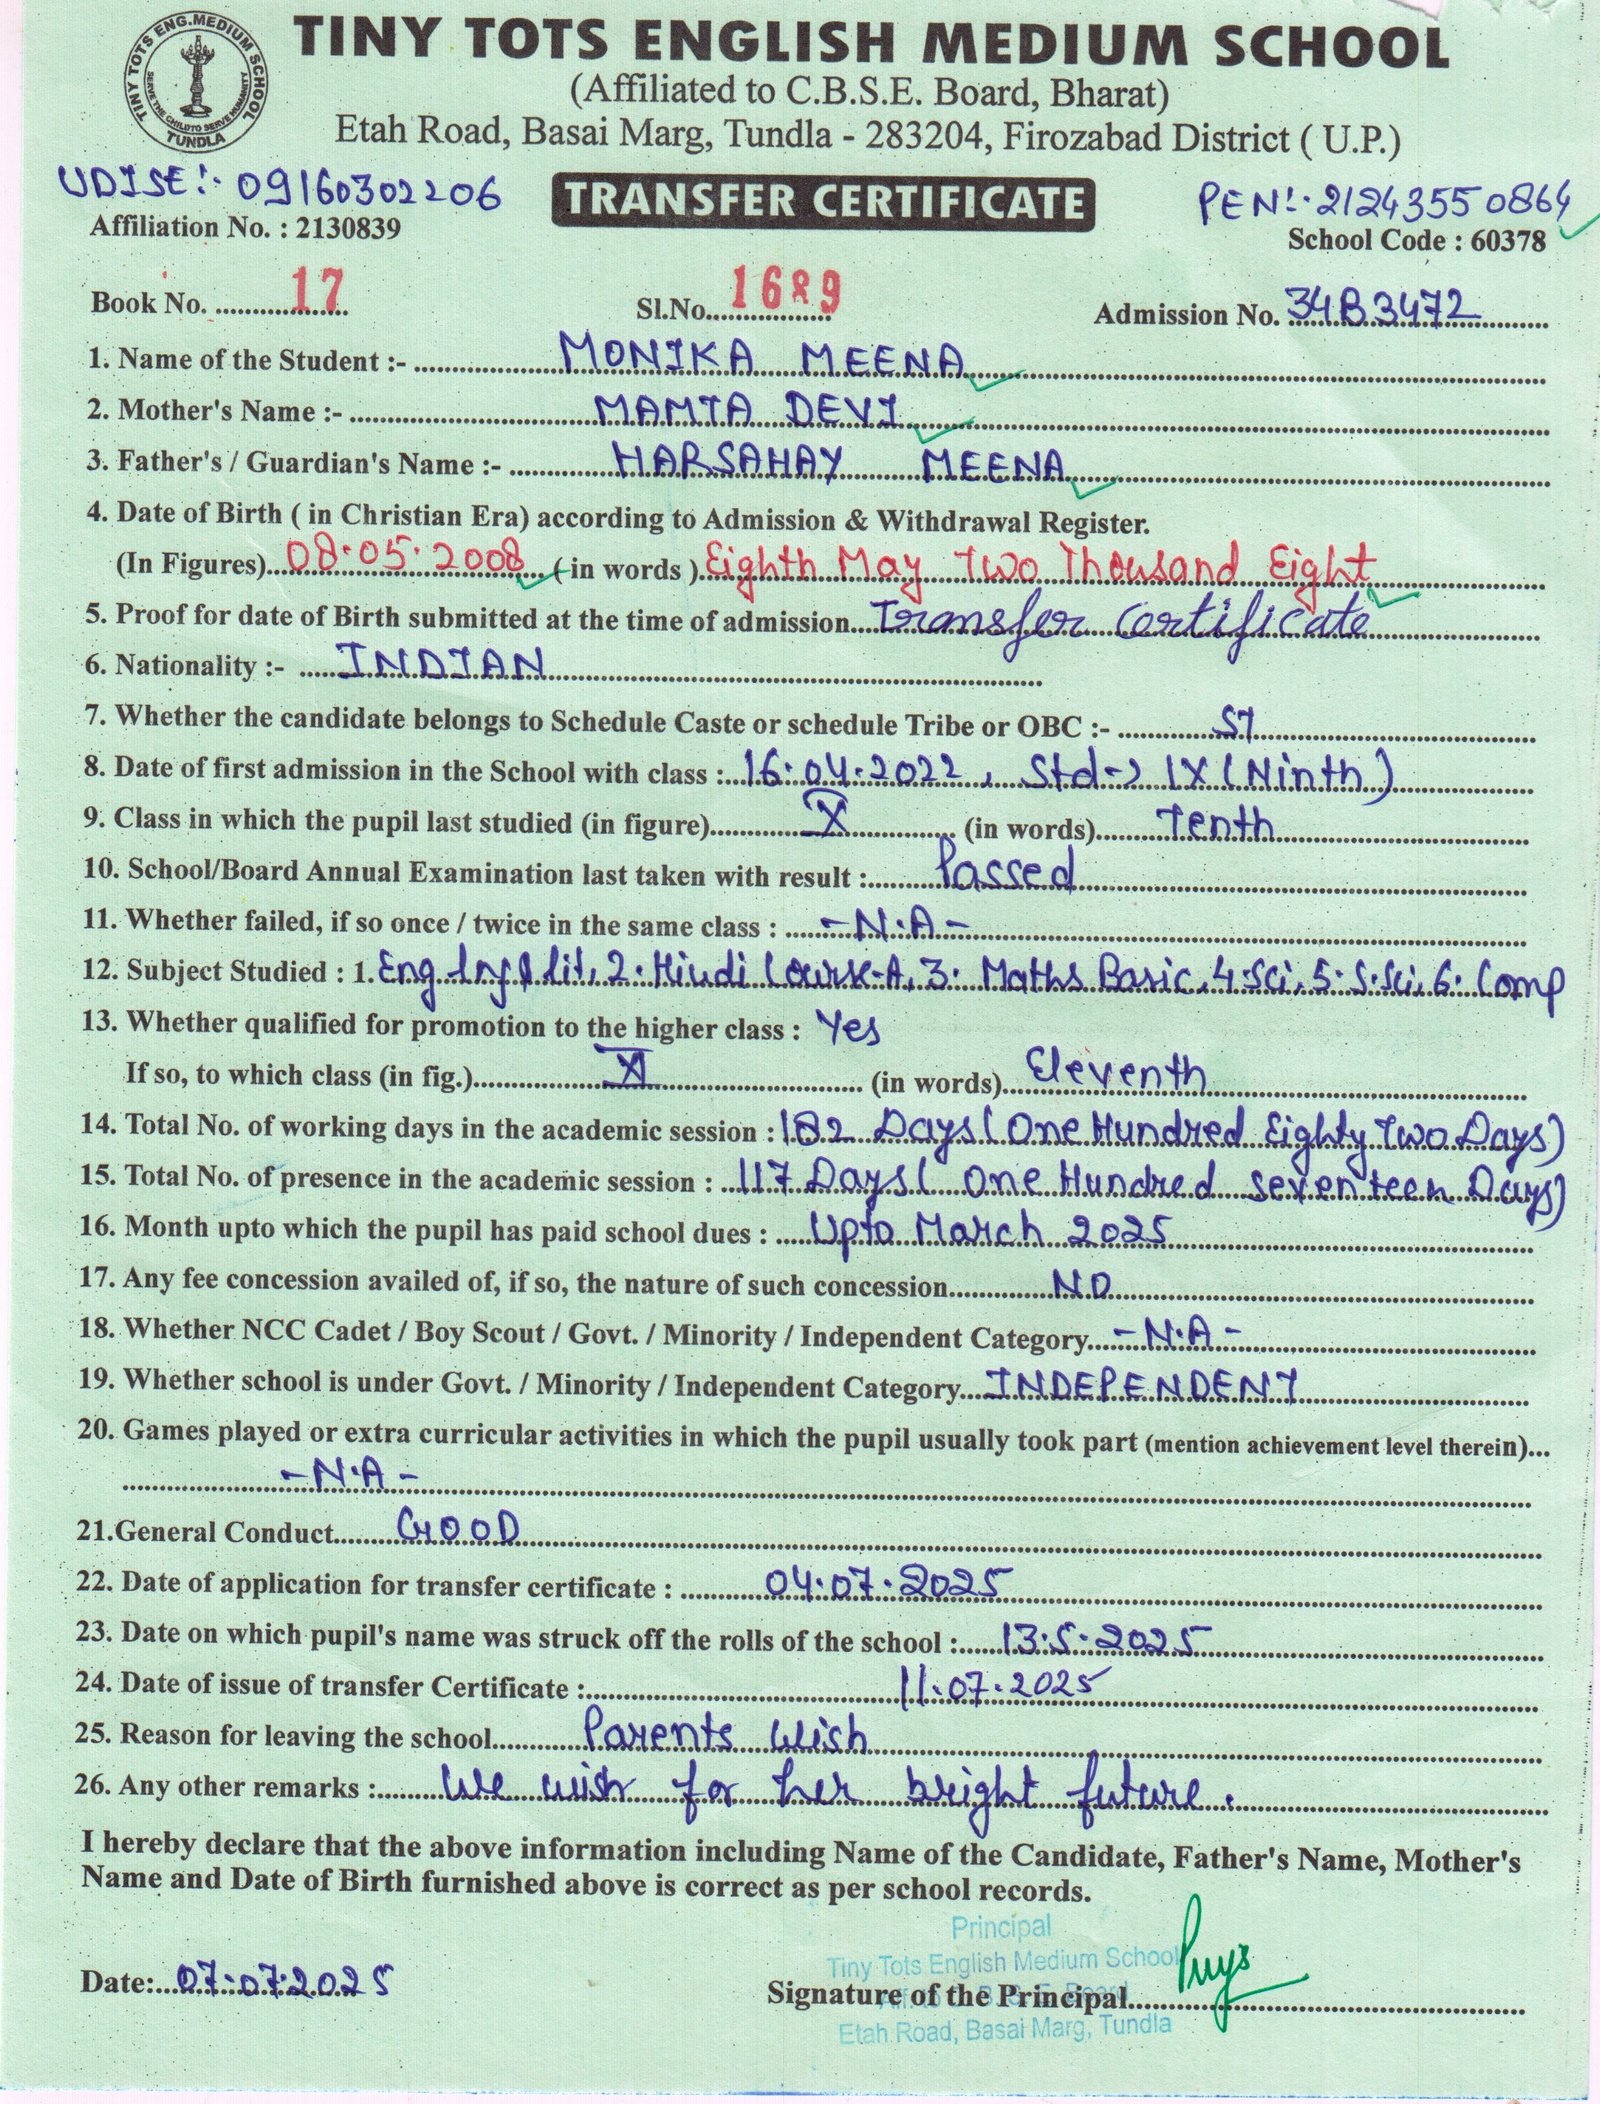 TINY TOTS ENGLISH MEDIUM SCHOOL
(Affiliated to C.B.S.E. Board, Bharat)
Etah Road, Basai Marg, Tundla - 283204, Firozabad District ( U.P.)
TINY TOTS ENG.MEDIUM SCHOOL
SERVE THE CHILD TO SERVE HUMANITY
TUNDLA
UDISE:- 09160302206 TRANSFER CERTIFICATE PEN:- 21243550864
Affiliation No. : 2130839 School Code : 60378
Book No. 17 Sl.No. 1689 Admission No. 34B3472
1. Name of the Student :- MONIKA MEENA
2. Mother's Name :- MAMTA DEVI
3. Father's / Guardian's Name :- HARSAHAY MEENA
4. Date of Birth ( in Christian Era) according to Admission & Withdrawal Register.
(In Figures) 08.05.2008 (in words ) Eighth May Two Thousand Eight
5. Proof for date of Birth submitted at the time of admission Transfer Certificate
6. Nationality :- INDIAN
7. Whether the candidate belongs to Schedule Caste or schedule Tribe or OBC :- ST
8. Date of first admission in the School with class : 16.04.2022, Std-> IX (Ninth)
9. Class in which the pupil last studied (in figure) X (in words) Tenth
10. School/Board Annual Examination last taken with result : Passed
11. Whether failed, if so once / twice in the same class : -N.A-
12. Subject Studied : 1. Eng. Lng & Lit, 2. Hindi Course-A, 3. Maths Basic, 4.Sci, 5. S.Sci, 6. Comp
13. Whether qualified for promotion to the higher class : Yes
If so, to which class (in fig.) XI (in words) Eleventh
14. Total No. of working days in the academic session : 182 Days (One Hundred Eighty Two Days)
15. Total No. of presence in the academic session : 117 Days ( One Hundred Seventeen Days)
16. Month upto which the pupil has paid school dues : Upto March 2025
17. Any fee concession availed of, if so, the nature of such concession NO
18. Whether NCC Cadet / Boy Scout / Govt. / Minority / Independent Category -N.A-
19. Whether school is under Govt. / Minority / Independent Category INDEPENDENT
20. Games played or extra curricular activities in which the pupil usually took part (mention achievement level therein)...
-N.A-
21.General Conduct GOOD
22. Date of application for transfer certificate : 04.07.2025
23. Date on which pupil's name was struck off the rolls of the school : 13.5.2025
24. Date of issue of transfer Certificate : 11.07.2025
25. Reason for leaving the school Parents Wish
26. Any other remarks : We wish for her bright future.
I hereby declare that the above information including Name of the Candidate, Father's Name, Mother's
Name and Date of Birth furnished above is correct as per school records.
Principal
Tiny Tots English Medium School
Date: 07.07.2025 Signature of the Principal
Etah Road, Basai Marg, Tundla